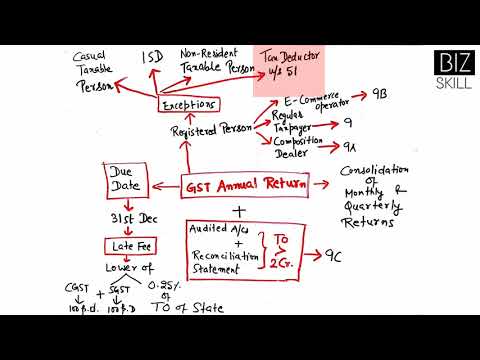 Casual
Taxable
Person
ISD
Non-Resident
Taxable Person
Tax Deductor
u/s 51
BIZ
SKILL
Exceptions
Registered Person
E-Commerce
operator
9B
Regular
Taxpayer
9
Composition
Dealer
9A
Due
Date
GST Annual Return
Consolidation
of
Monthly &
Quarterly
Returns
31st Dec
Late Fee
Lower of
CGST + SGST
100 p.d. 100 p.D
0.25%
of
TO of State
+
Audited A/cs
+
Reconciliation
Statement
TO
>
2Cr.
9C